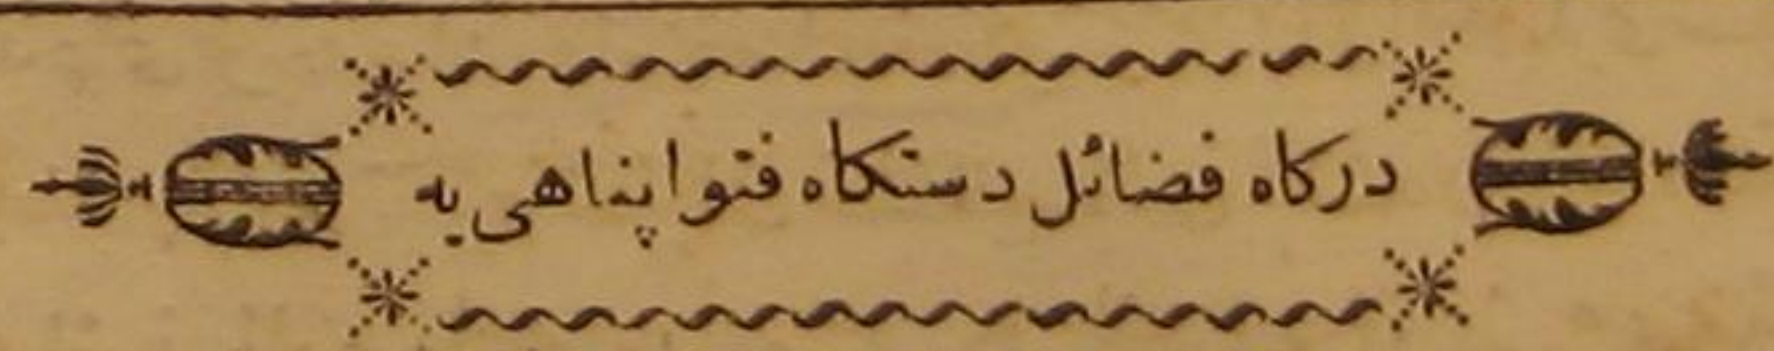 دركاه فضائل دستكاه فتوا پناهى يه